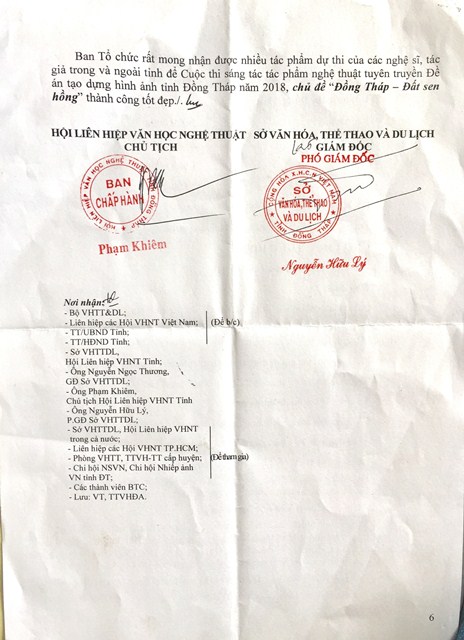 Ban Tổ chức rất mong nhận được nhiều tác phẩm dự thi của các nghệ sĩ, tác
giả trong và ngoài tỉnh để Cuộc thi sáng tác tác phẩm nghệ thuật tuyên truyền Đề
án tạo dựng hình ảnh tỉnh Đồng Tháp năm 2018, chủ đề “Đồng Tháp – Đất sen
hồng” thành công tốt đẹp./.
HỘI LIÊN HIỆP VĂN HỌC NGHỆ THUẬT
CHỦ TỊCH
HỘI LIÊN HIỆP VĂN HỌC NGHỆ THUẬT
BAN
CHẤP HÀNH
ĐỒNG THÁP
Phạm Khiêm
SỞ VĂN HÓA, THỂ THAO VÀ DU LỊCH
GIÁM ĐỐC
PHÓ GIÁM ĐỐC
CỘNG HÒA X.H.C.N VIỆT NAM
SỞ
VĂN HÓA, THỂ THAO
VÀ DU LỊCH
TỈNH ĐỒNG THÁP
Nguyễn Hữu Lý
Nơi nhận:
- Bộ VHTT&DL;
- Liên hiệp các Hội VHNT Việt Nam;
(Để b/c)
- TT/UBND Tỉnh;
- TT/HĐND Tỉnh;
- Sở VHTTDL,
Hội Liên hiệp VHNT Tỉnh;
- Ông Nguyễn Ngọc Thương,
GĐ Sở VHTTDL;
- Ông Phạm Khiêm,
Chủ tịch Hội Liên hiệp VHNT Tỉnh
- Ông Nguyễn Hữu Lý,
P.GĐ Sở VHTTDL;
- Sở VHTTDL, Hội Liên hiệp VHNT
trong cả nước;
- Liên hiệp các Hội VHNT TP.HCM;
- Phòng VHTT, TTVH-TT cấp huyện;
(Để tham gia)
- Chi hội NSVN, Chi hội Nhiếp ảnh
VN tỉnh ĐT;
- Các thành viên BTC;
- Lưu: VT, TTVHĐA.
6